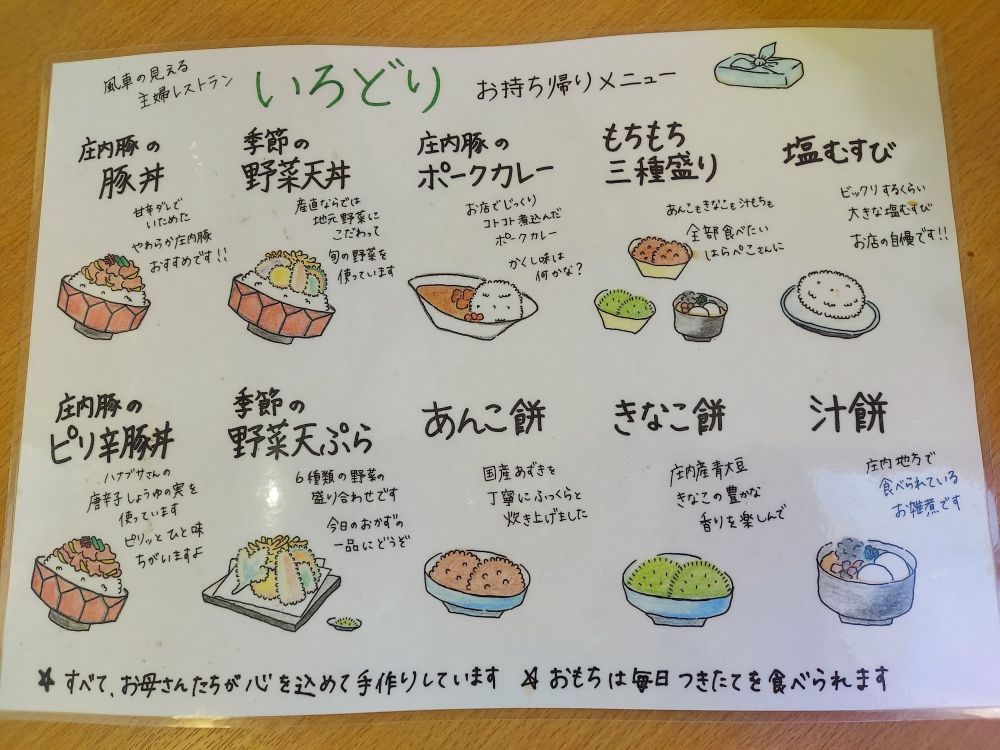 風車の見える
主婦レストラン
いろどり
お持ち帰りメニュー
庄内豚の
豚丼
甘辛ダレで
いためた
やわらか庄内豚
おすすめです!!
季節の
野菜天丼
産直ならでは
地元野菜に
こだわって
旬の野菜を
使っています
庄内豚の
ポークカレー
お店でじっくり
コトコト煮込んだ
ポークカレー
かくし味は
何かな?
もちもち
三種盛り
あんこもきなこも汁もちも
全部食べたい
はらぺこさんに
塩むすび
ビックリするくらい
大きな塩むすび
お店の自慢です!!
庄内豚の
ピリ辛豚丼
ハナブサさんの
唐辛子しょうゆの実を
使っています
ピリッとひと味
ちがいますよ
季節の
野菜天ぷら
6種類の野菜の
盛り合わせです
今日のおかずの
一品にどうぞ
あんこ餅
国産あずきを
丁寧にふっくらと
炊き上げました
きなこ餅
庄内産青大豆
きなこの豊かな
香りを楽しんで
汁餅
庄内地方で
食べられている
お雑煮です
☆すべて、お母さんたちが心を込めて手作りしています ☆おもちは毎日つきたてを食べられます